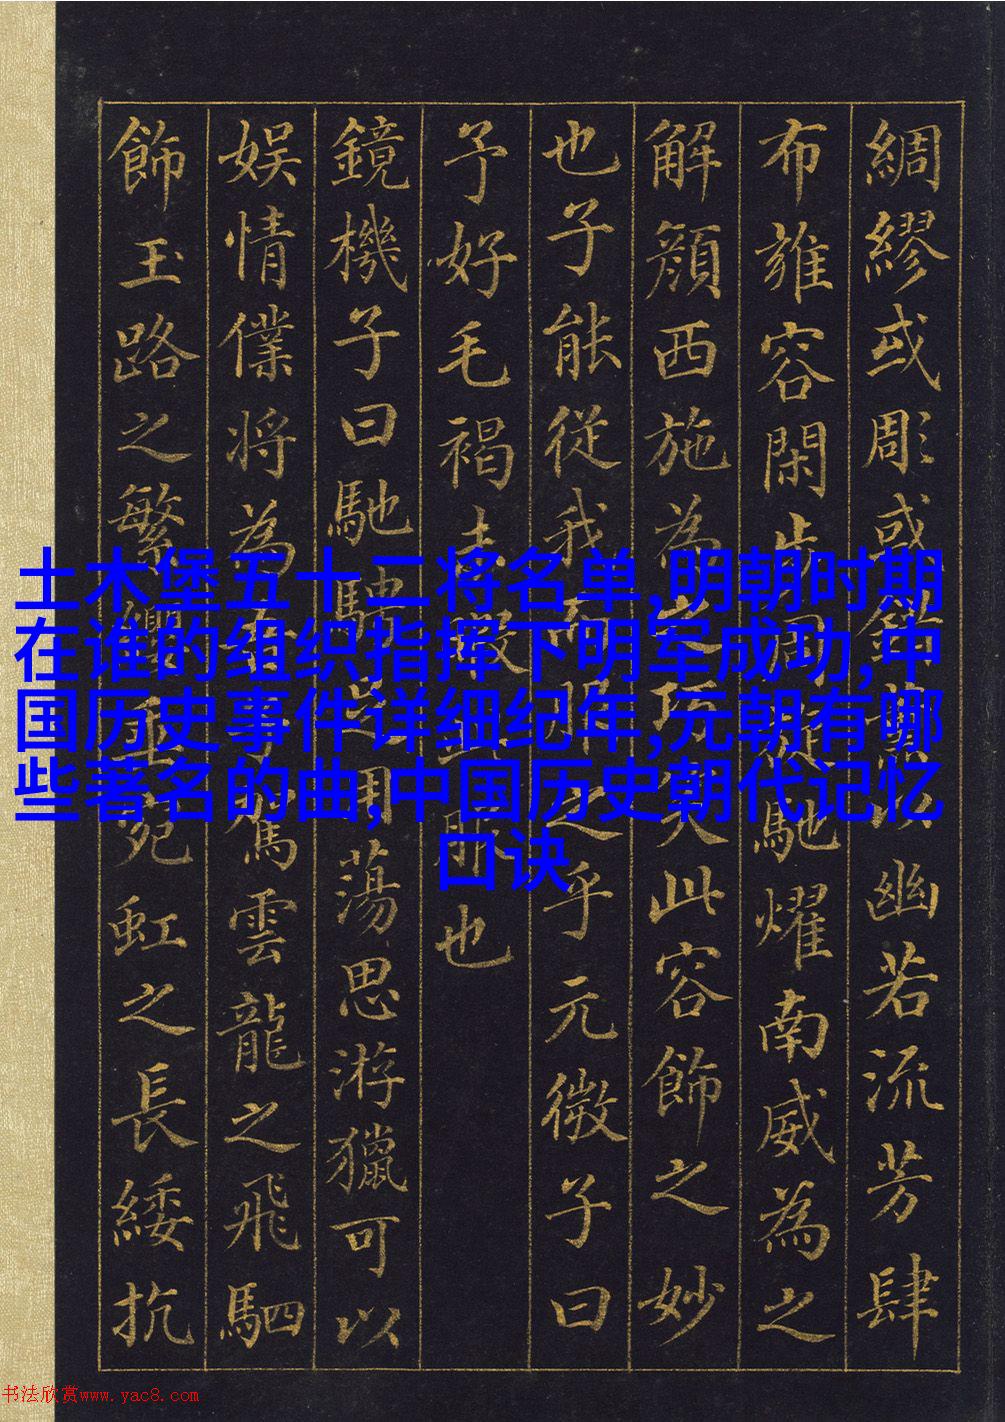 綢繆或彫或錯薰以幽若流芳肆
布雍容閑步周旋馳耀南威為之
解顏西施為之巧笑此容飾之妙
也子能從我而服之乎元微子曰
予好毛褐未暇此服也
鏡機子曰馳騁足用蕩思游獵可以
娛情僕將為吾子駕雲龍之飛駟
飾玉路之繁纓垂宛虹之長緌抗
土木堡五十二将名单,明朝时期
在谁的组织指挥下明军成功,中
国历史事件详细纪年,元朝有哪
些著名的曲,中国历史朝代记忆
口诀
书法欣赏www.yac8.com